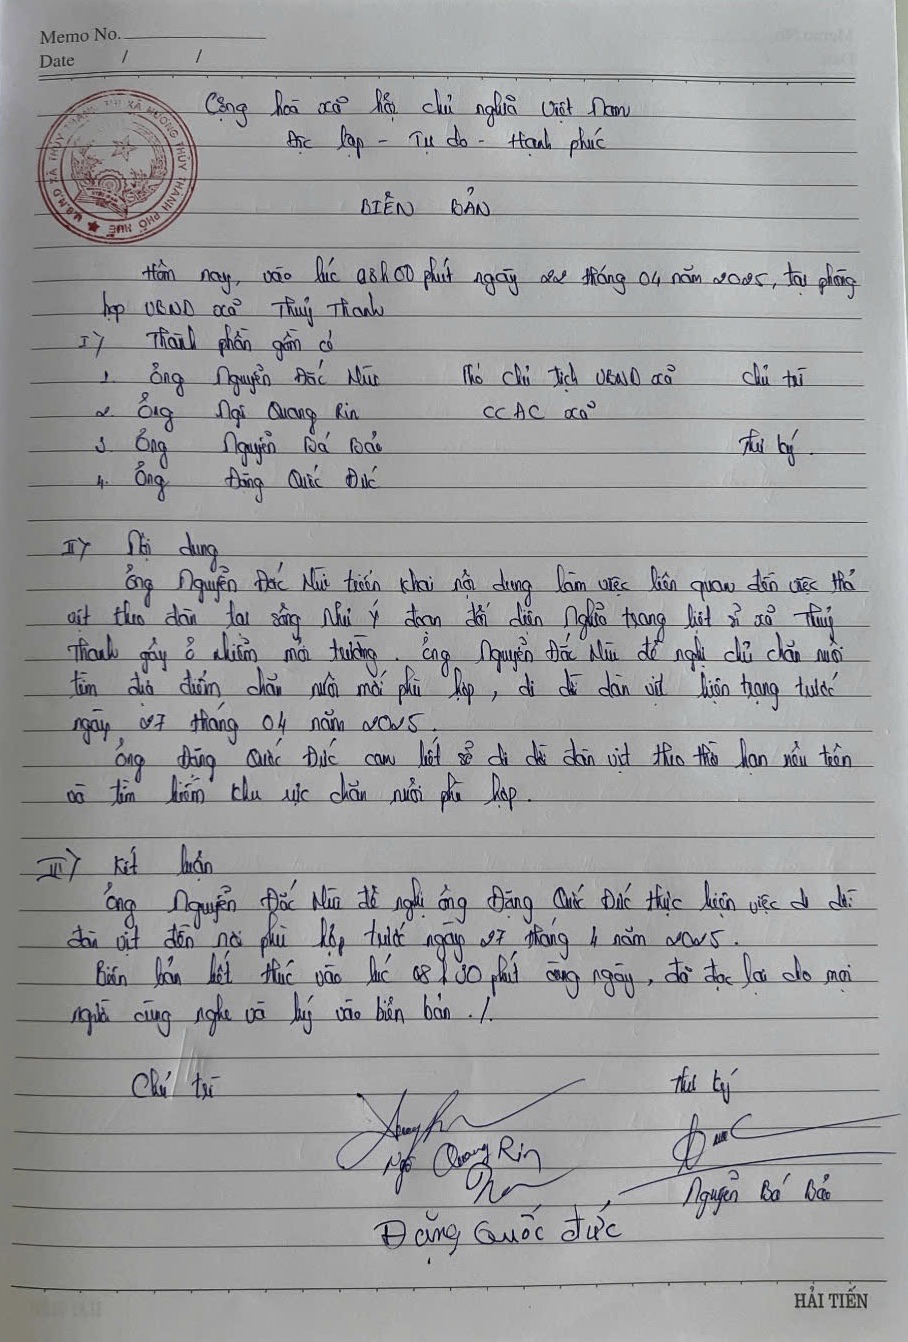 Memo No.
Date / /
Cộng hoà xã hội chủ nghĩa Việt Nam
Độc lập - Tự do - Hạnh phúc
BIÊN BẢN
Hôm nay, vào lúc 08h00 phút ngày 22 tháng 04 năm 2025, tại phòng
họp UBND xã Thuỷ Thanh
I) Thành phần gồm có
1. Ông Nguyễn Đắc Phó Chủ tịch UBND xã chủ trì
2. Ông Ngô Quang Rin CCAC xã
3. Ông Nguyễn Bá Bảo Thư ký.
4. Ông Đặng Quốc Đức
II) Nội dung
Ông Nguyễn Đắc triển khai nội dung làm việc liên quan đến việc thả
vịt theo đàn tại sông Như Ý đoạn đối diện Nghĩa trang liệt sĩ xã Thuỷ
Thanh gây ô nhiễm môi trường. Ông Nguyễn Đắc đề nghị chủ chăn nuôi
tìm địa điểm chăn nuôi mới phù hợp, di dời đàn vịt hiện trạng trước
ngày 27 tháng 04 năm 2025.
Ông Đặng Quốc Đức cam kết sẽ di dời đàn vịt theo thời hạn nêu trên
và tìm kiếm khu vực chăn nuôi phù hợp.
III) Kết luận
Ông Nguyễn Đắc đề nghị ông Đặng Quốc Đức thực hiện việc di dời
đàn vịt đến nơi phù hợp trước ngày 27 tháng 4 năm 2025.
Biên bản kết thúc vào lúc 08h30 phút cùng ngày, đã đọc lại cho mọi
người cùng nghe và ký vào biên bản ./.
Chủ trì Thư ký
Ngô Quang Rin
Nguyễn Bá Bảo
Đặng Quốc Đức
HẢI TIẾN